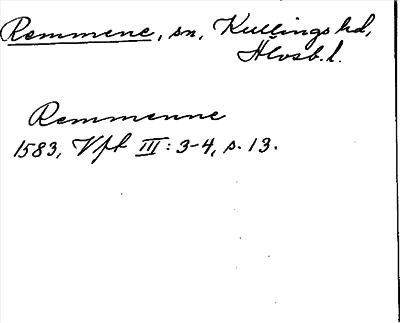 Remmene, sn, Kullings hd,
Älvsb. l.
Remmenne
1583, Vft III: 3-4, s. 13.